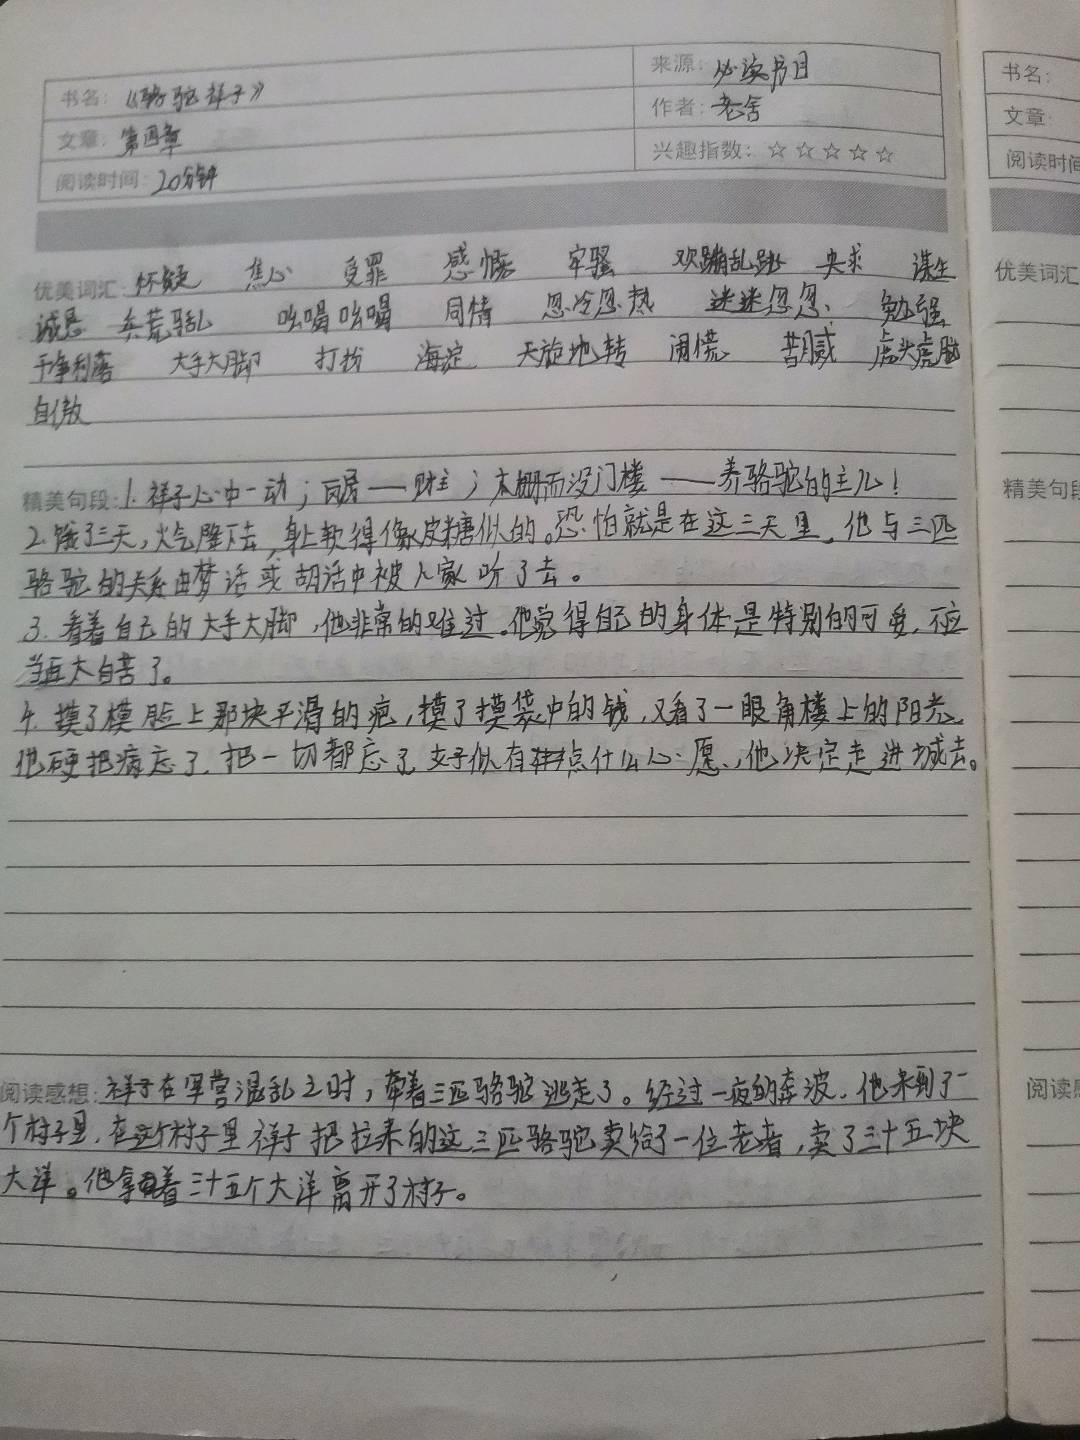 书名：《骆驼祥子》
来源：必读书目
文章：第四章
作者：老舍
阅读时间：20分钟
兴趣指数：☆☆☆☆☆
优美词汇：怀疑 焦心 受罪 感慨 牢骚 欢蹦乱跳 央求 谋生
诚恳 兵荒马乱 吆喝吆喝 同情 忽冷忽热 迷迷忽忽 勉强
干净利落 大手大脚 打扮 海淀 天旋地转 闹慌 苦腻 虎头虎脑
自傲
精美句段：1. 祥子心中一动；瓦房——财主；木栅而没门楼——养骆驼的主儿！
2. 饿了三天，火气降下去，身上软得像皮糖似的。恐怕就是在这三天里，他与三匹
骆驼的关系由梦话或胡话中被人家听了去。
3. 看着自己的大手大脚，他非常的难过。他觉得自己的身体是特别的可爱，不应
当再太自苦了。
4. 摸了摸脸上那块平滑的疤，摸了摸袋中的钱，又看了一眼角楼上的阳光，
他硬把病忘了，把一切都忘了，好似有点什么心愿，他决定走进城去。
阅读感想：祥子在军营混乱之时，牵着三匹骆驼逃走了。经过一夜的奔波，他来到了一
个村子里，在这个村子里祥子把拉来的这三匹骆驼卖给了一位老者，卖了三十五块
大洋。他拿着三十五个大洋离开了村子。
书名：
文章：
阅读时间
优美词汇
精美句段
阅读感